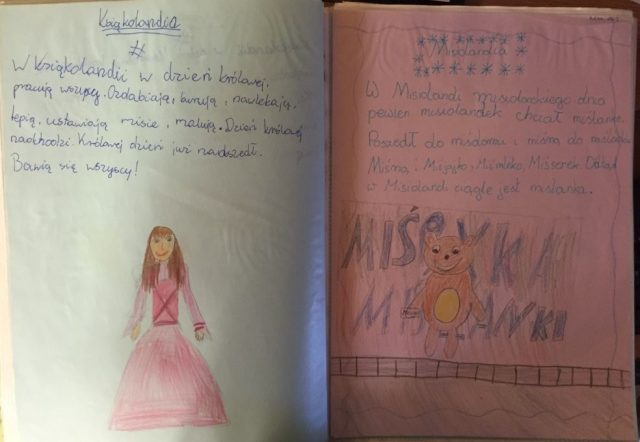 Książkolandia
W książkolandii w dzień królowej,
pracują wszyscy. Ozdabiają, nawlekają,
lepią, ustawiają misie, malują. Dzień królowej
nadchodzi. Królowej dzień już nadszedł.
Bawią się wszyscy!
Misiolandia
W Misiolandi misiolandzkiego dnia
pewien misiolandek chciał misianie.
Poszedł do miśdomu i
i Mismleko, Misserek. Odtąd
w Misiolandi ciągle jest misianka.